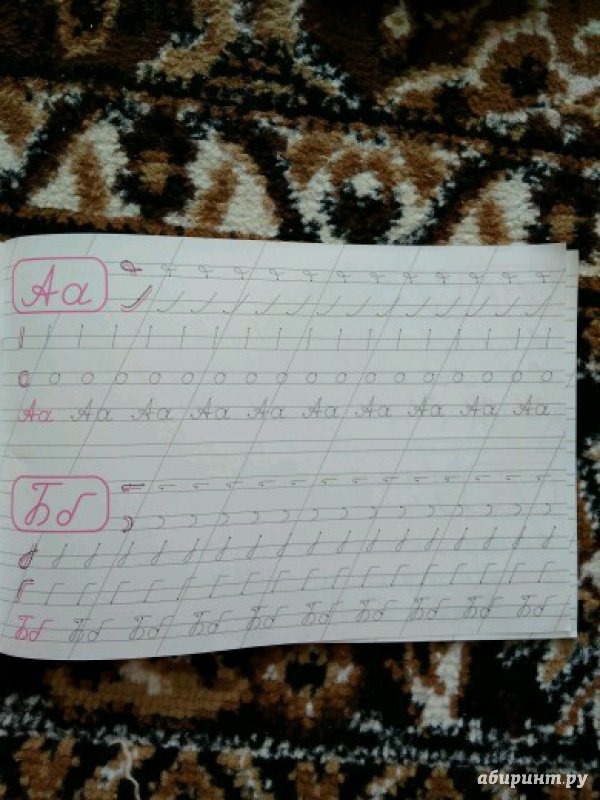 Аа
Аа Аа Аа Аа Аа Аа Аа Аа Аа Аа
Бб
Бб Бб Бб Бб Бб Бб Бб Бб Бб Бб
абиринт.ру